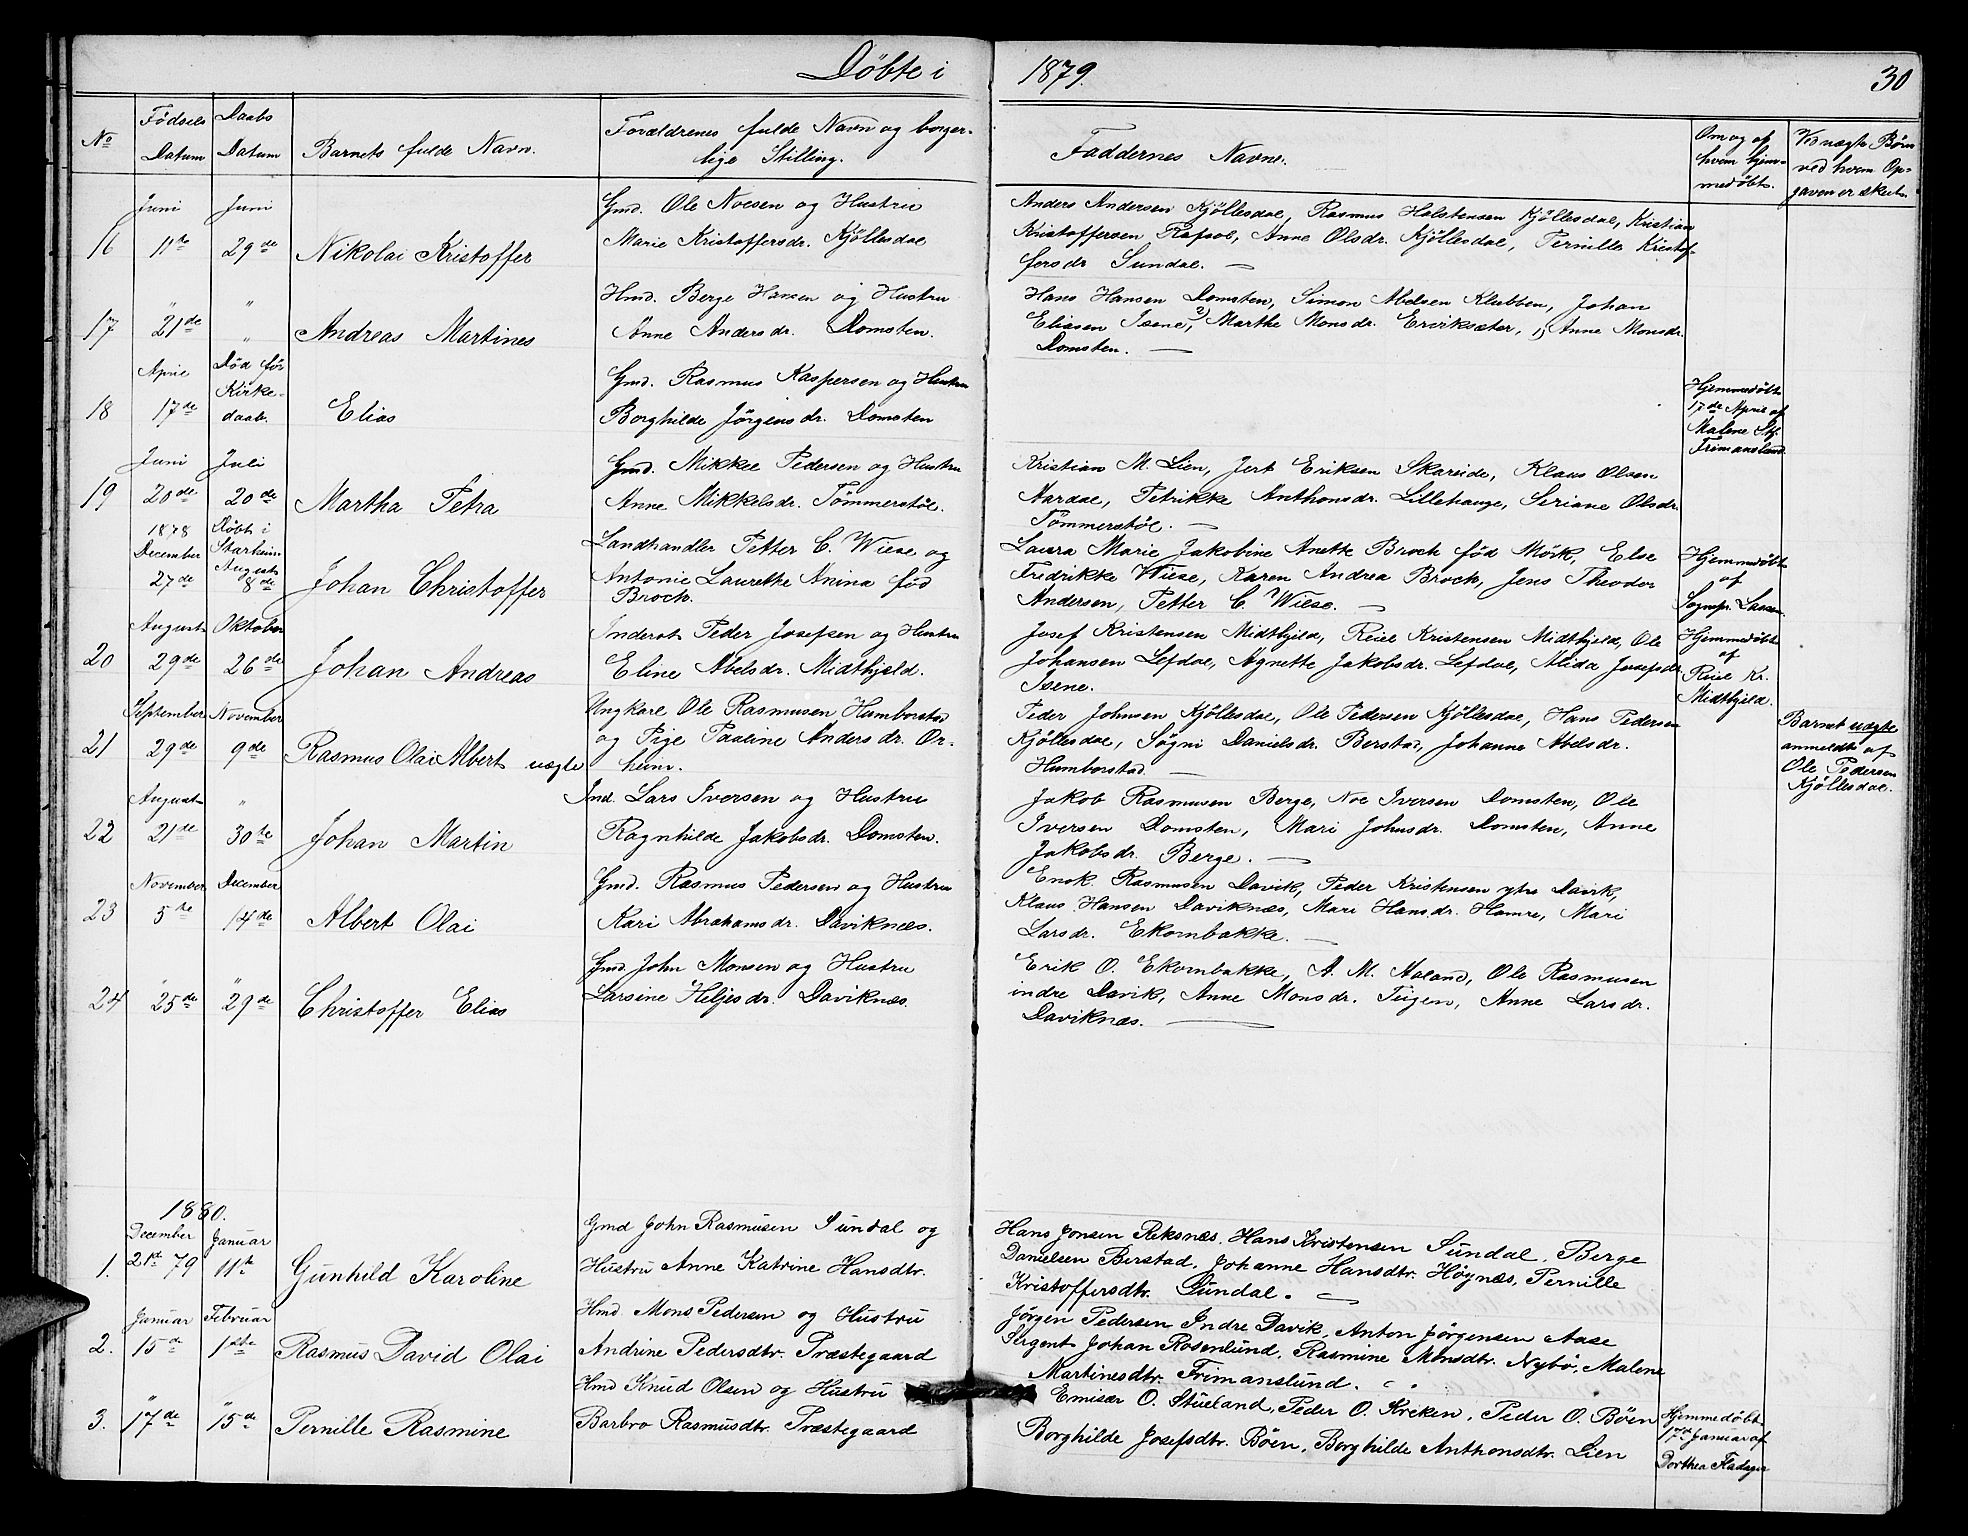 Döbte i 1879. 30
No
Födsels Datum
Daabs Datum
Barnets fulde Navn.
Forældrenes fulde Navn og borger-
lige Stilling.
Faddernes Navne.
Om og af
hvem hjem-
medøbt.
Ved uægte Børn
ved hvem Op-
gaven er skeet.
Juni Juni
16 11te 29de Nikolai Kristoffer
Gmd. Ole Noesen og Hustru
Marie Kristoffersdr. Kjöllesdal
Anders Andersen Kjöllesdal, Rasmus Halstensen Kjöllesdal, Kristian
Kristoffersen Anne Olsdr. Kjöllesdal, Pernille Kristof-
fersdr Sundal.
" "
17 21de " Andreas Martines
Hmd. Berge Hansen og Hustru
Anne Andersdr. Domsten.
Hans Hansen Domsten, Simon Abelsen Klubben, Johan
Eliasen Isene, Marthe Monsdr. Erviksæter, Anne Monsdr.
Domsten.
April Död før
Kirke-
18 17de daab. Elias
Gmd. Rasmus Kaspersen og Hustru
Borghilde Jörgensdr. Domsten
Hjemmedöbt
17de April af
Malene
Frimanslund
Juni Juli
19 20de 20de Martha Petra
Gmd. Mikkel Pedersen og Hustru
Anne Mikkelsdr. Tömmerstöl.
Kristian M. Lien, Jert Eriksen Skarside, Klaus Olsen
Aardal, Petrikke Anthonsdr. Lillehauge, Seriane Olsdr.
Tömmerstöl.
1878 Döbt i
December Starheim
August
27de 8de Johan Christoffer
Landhandler Petter C. Wiese og
Antonie Laurette Anina fød
Broch.
Laura Marie Jakobine Anette Broch född Mörk, Else
Fredrikke Wiese, Karen Andrea Broch, Jens Theodor
Andersen, Petter C. Wiese.
Hjemmedöbt
af
Sognpr. Lassen
August Oktober
20 29de 26de Johan Andreas
Inderst Peder Josefsen og Hustru
Eline Abelsdr. Midthjeld.
Josef Kristensen Midthjeld, Reiel Kristensen Midthjeld, Ole
Johansen Lefdal, Agnette Jakobsdr. Lefdal, Alida Josefsdr.
Isene.
Hjemmedöbt
af
Reiel Kr.
Midthjeld.
September November
21 29de 9de Rasmus Olai Albert uægte
Ungkarl Ole Rasmusen Humborstad
og Pige Pauline Andersdr. Or-
heim.
Peder Johnsen Kjöllesdal, Ole Pedersen Kjöllesdal, Hans Pedersen
Kjöllesdal, Sögni Danielsdr. Berstad, Johanne Abelsdr.
Humborstad.
Barnet uægte
anmeldt af
Ole Pedersen
Kjöllesdal.
August "
22 21de 30te Johan Martin
Ind. Lars Iversen og Hustru
Ragnhilde Jakobsdr. Domsten.
Jakob Rasmusen Berge, Noe Iversen Domsten, Ole
Iversen Domsten, Mari Johnsdr. Domsten, Anne
Jakobsdr. Berge.
November December
23 5te 14de Albert Olai
Gmd. Rasmus Pedersen og Hustru
Kari Abrahamsdr. Daviknæs.
Enok Rasmusen Davik, Peder Kristensen ytre Davik,
Klaus Hansen Daviknæs, Mari Hansdr. Hamre, Mari
Larsdr. Ekornbakke.
" "
24 25de 29de Christoffer Elias
Gmd. John Monsen og Hustru
Larsine Heljesdr. Daviknæs.
Erik O. Ekornbakke, A. M. Aaland, Ole Rasmusen
indre Davik, Anne Monsdr. Teigen, Anne Larsdr.
Daviknæs.
1880.
December Januar
1. 21de 79 11te Gunhild Karoline
Gmd John Rasmusen Sundal og
Hustru Anne Katrine Hansdtr.
Hans Jonsen Reksnæs, Hans Kristensen Sundal, Berge
Danielsen Berstad, Johanne Hansdtr. Høgnæs, Pernille
Kristoffersdtr. Sundal.
Januar Februar
2. 15de 1ste Rasmus David Olai
Hmd Mons Pedersen og Hustru
Andrine Pedersdtr. Præstegaard
Jørgen Pedersen Indre Davik, Anton Jørgensen Aase
Sergent Johan Rosenlund, Rasmine Monsdtr. Nybø, Malene
Martinesdtr. Frimanslund.
" "
3. 17de 15de Pernille Rasmine
Hmd Knud Olsen og Hustru
Barbro Rasmusdtr. Præstegaard
Emisær O. Stueland, Peder O. Kreken, Peder O. Böen
Borghilde Josefsdtr. Böen, Borghilde Anthonsdtr. Lien
Hjemmedöbt
17de Januar af
Dorthea Fladager